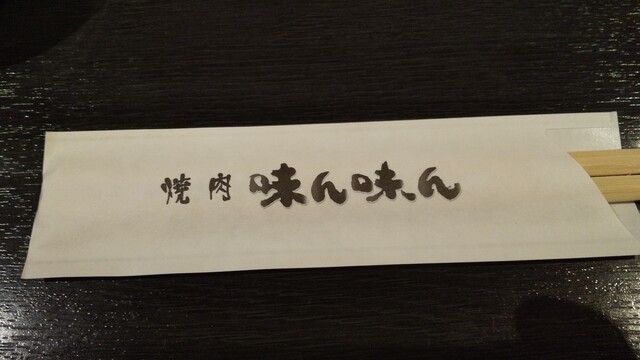 焼肉 味ん味ん